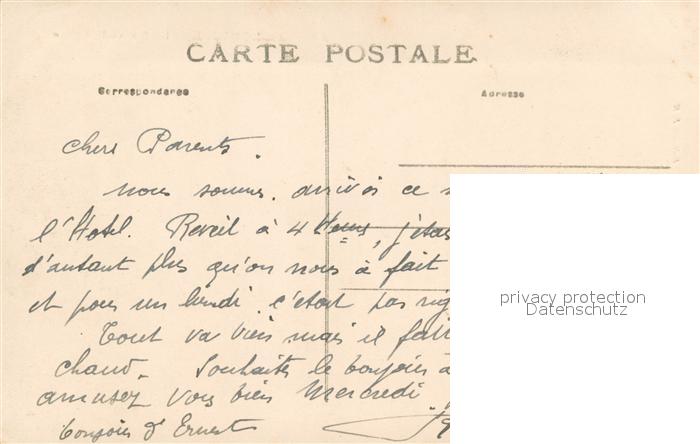 CARTE POSTALE
Correspondance
Adresse
chers Parents.
nous sommes. arrivés ce s
l'Hotel. Reveil à 4 Heures, j'etais
d'autant plus qu'on nous à fait
et pour un lundi. c'etait pas rig
Tout va bien mais il fait
chaud. Souhaites le bonjour à
amusez vous bien Mercredi
bonjour d'Ernest
privacy protection
Datenschutz